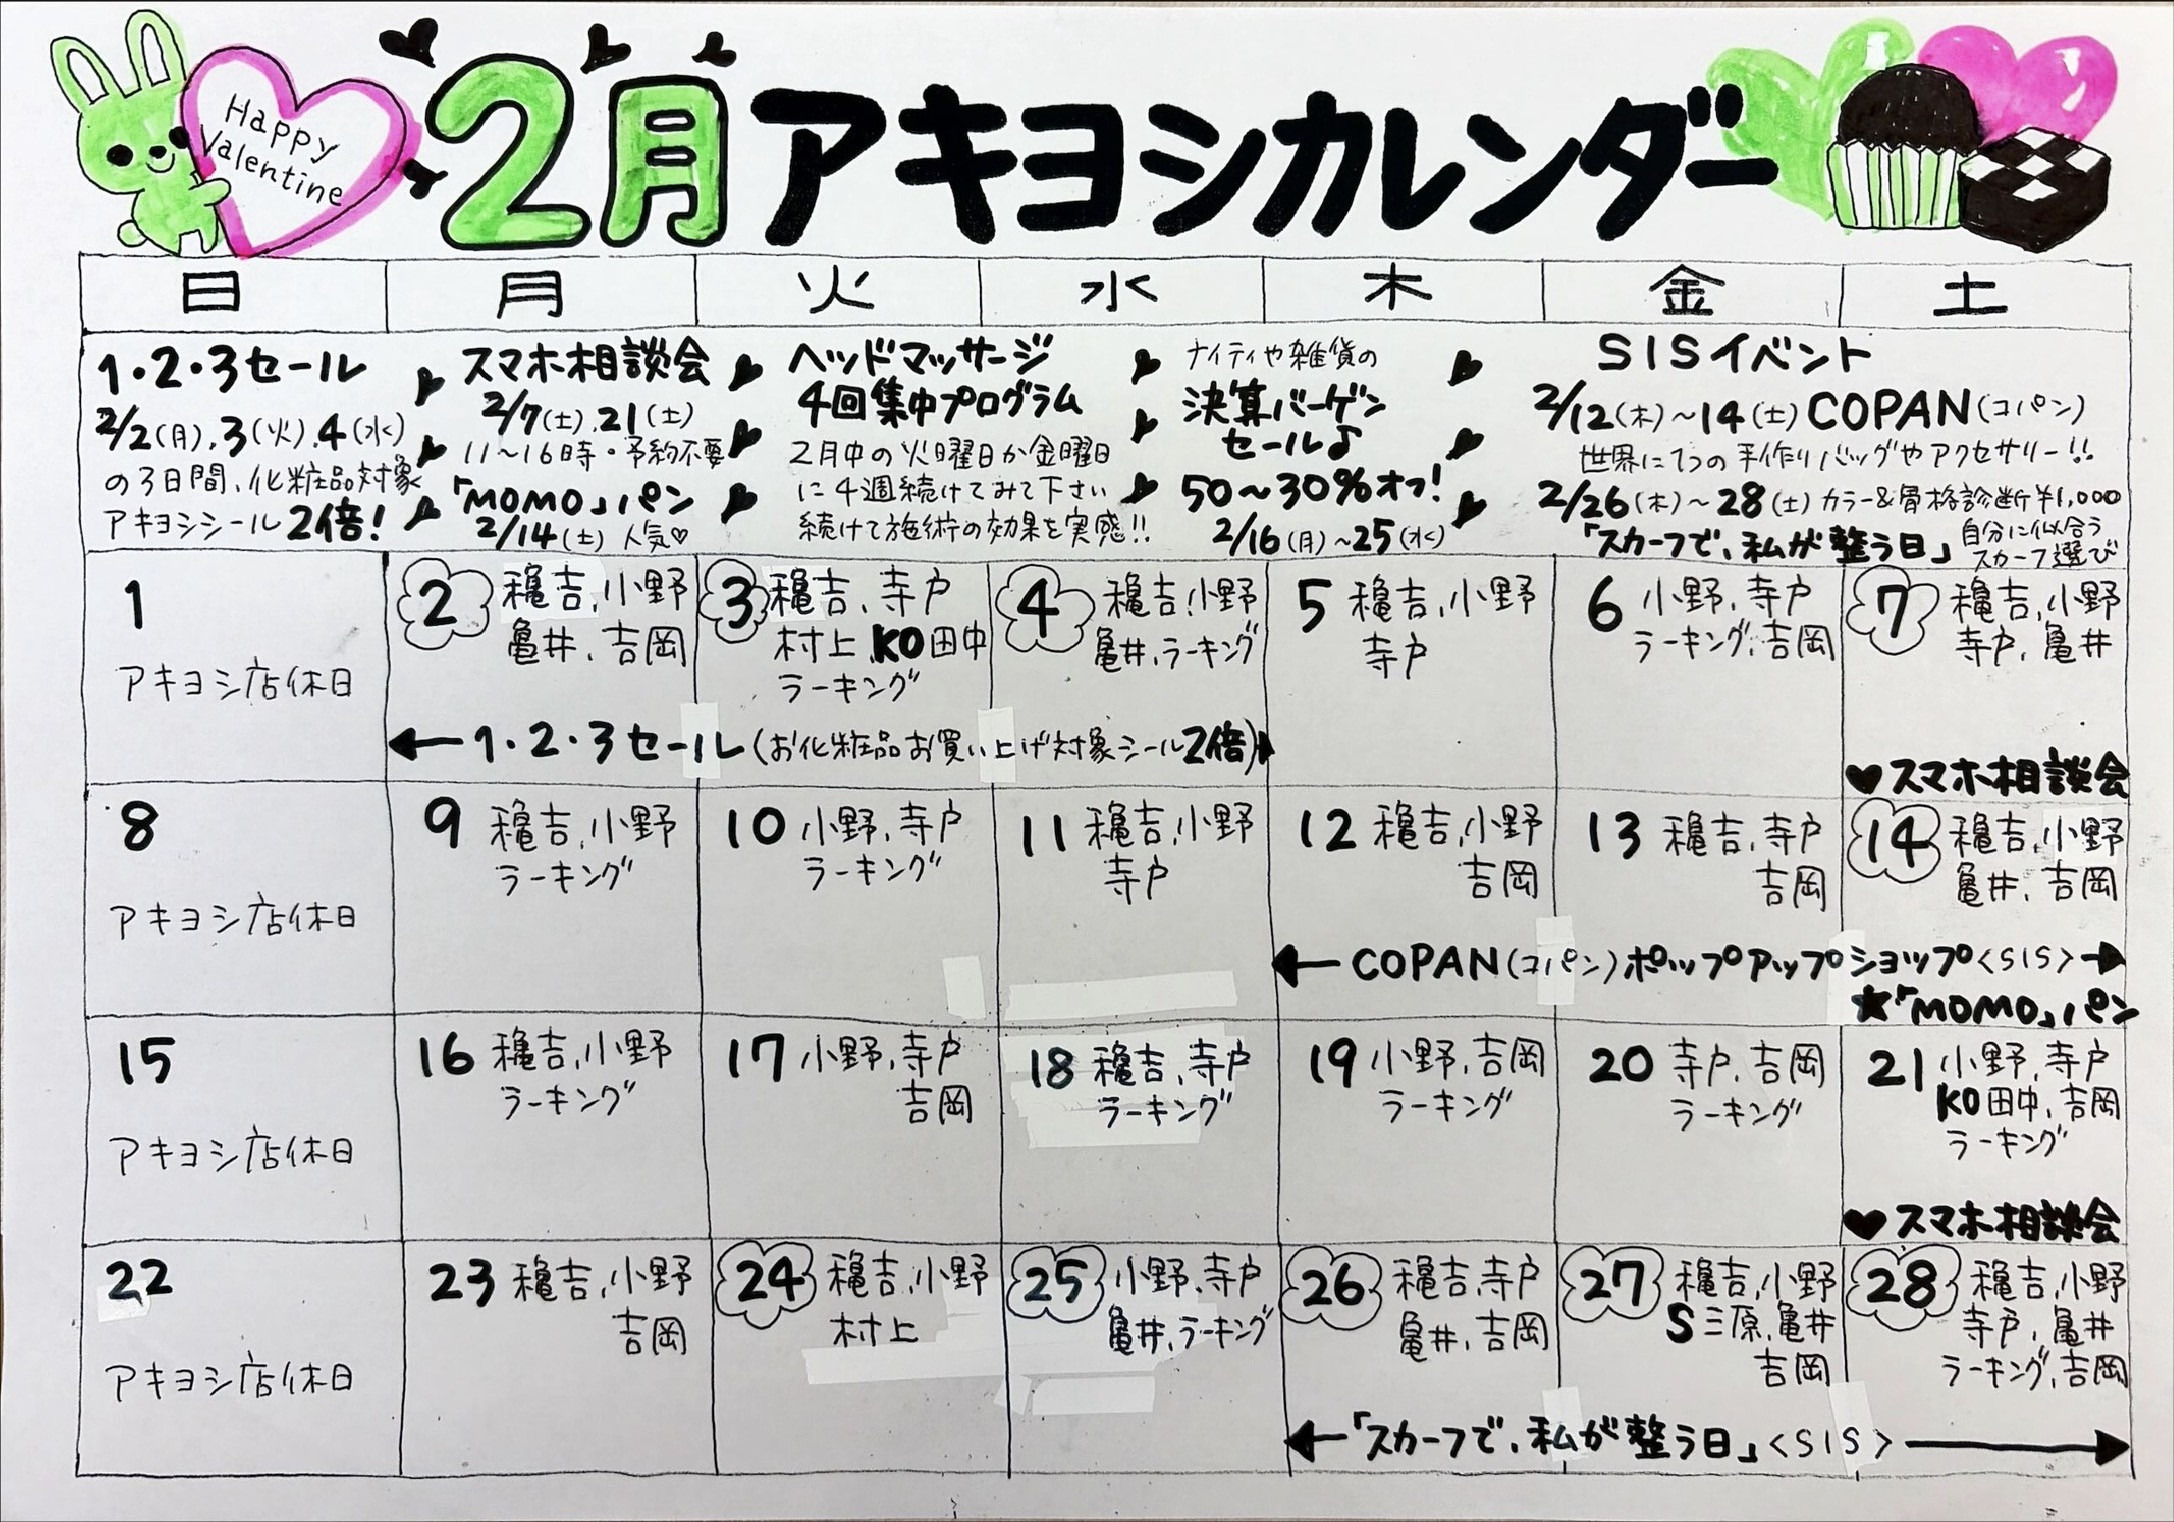 Happy
Valentine
2月アキヨシカレンダー
日 月 火 水 木 金 土
1・2・3セール
2/2(月).3(火).4(水)
の3日間、化粧品対象
アキヨシシール2倍!
スマホ相談会
2/7(土).21(土)
11〜16時・予約不要
「MOMO」パン
2/14(土)人気♡
ヘッドマッサージ
4回集中プログラム
2月中の火曜日か金曜日
に4週続けてみて下さい
続けて施術の効果を実感!!
ナイティや雑貨の
決算バーゲン
セール♪
50〜30%オフ!
2/16(月)〜25(水)
SISイベント
2/12(木)〜14(土)COPAN(コパン)
世界に1つの手作りバッグやアクセサリー!!
2/26(木)〜28(土)カラー&骨格診断¥1,000
「スカーフで、私が整う日」
自分に似合う
スカーフ選び
1
アキヨシ店休日
2 穐吉,小野
亀井,吉岡
3 穐吉,寺戸
村上,KO田中
ラーキング
4 穐吉,小野
亀井,ラーキング
5 穐吉,小野
寺戸
6 小野,寺戸
ラーキング,吉岡
7 穐吉,小野
寺戸,亀井
←1・2・3セール(お化粧品お買い上げ対象シール2倍)→
♥スマホ相談会
8
アキヨシ店休日
9 穐吉,小野
ラーキング
10 小野,寺戸
ラーキング
11 穐吉,小野
寺戸
12 穐吉,小野
吉岡
13 穐吉,寺戸
吉岡
14 穐吉,小野
亀井,吉岡
←COPAN(コパン)ポップアップショップ<SIS>→
★「MOMO」パン
15
アキヨシ店休日
16 穐吉,小野
ラーキング
17 小野,寺戸
吉岡
18 穐吉,寺戸
ラーキング
19 小野,吉岡
ラーキング
20 寺戸,吉岡
ラーキング
21 小野,寺戸
KO田中,吉岡
ラーキング
♥スマホ相談会
22
アキヨシ店休日
23 穐吉,小野
吉岡
24 穐吉,小野
村上
25 小野,寺戸
亀井,ラーキング
26 穐吉,寺戸
亀井,吉岡
27 穐吉,小野
S三原,亀井
吉岡
28 穐吉,小野
寺戸,亀井
ラーキング,吉岡
←「スカーフで、私が整う日」<SIS>→